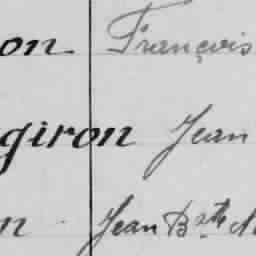 on François
giron Jean
n Jean Bste